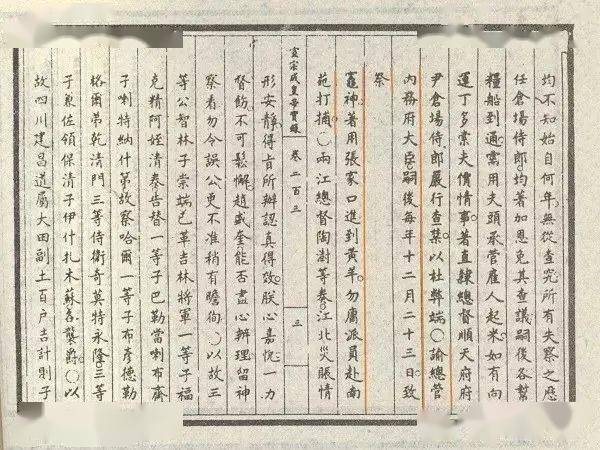 均不知始自何年無從查究所有失察之歷
任倉場侍郎均著加恩免其查議嗣後各幫
糧船到通需用夫頭承管雇人起米如有向
運丁多索夫價情事著直隸總督順天府府
尹倉場侍郎嚴行查禁以杜弊端○諭總管
內務府大臣嗣後每年十二月二十三日致
祭
竈神著用張家口進到黃羊勿庸派員赴南
苑打捕○兩江總督陶澍等奏江北災賑情
宣宗成皇帝實錄 卷二百三 三
形安靜得旨所辦認真得效朕心嘉悅一力
督飭不可鬆懈趙盛奎能否盡心辦理留神
察看勿令誤公更不准稍有瞻徇○以故三
等公智林子崇端已革吉林將軍一等子福
克精阿姪清泰告替一等子巴勒當喇布齋
子喇特納什第故察哈爾一等子布彥德勒
格爾弟乾清門三等侍衛奇莫特永隆三等
子兼佐領保清子伊什扎木蘇各襲爵○以
故四川建昌道屬大田副土百戶吉計則子